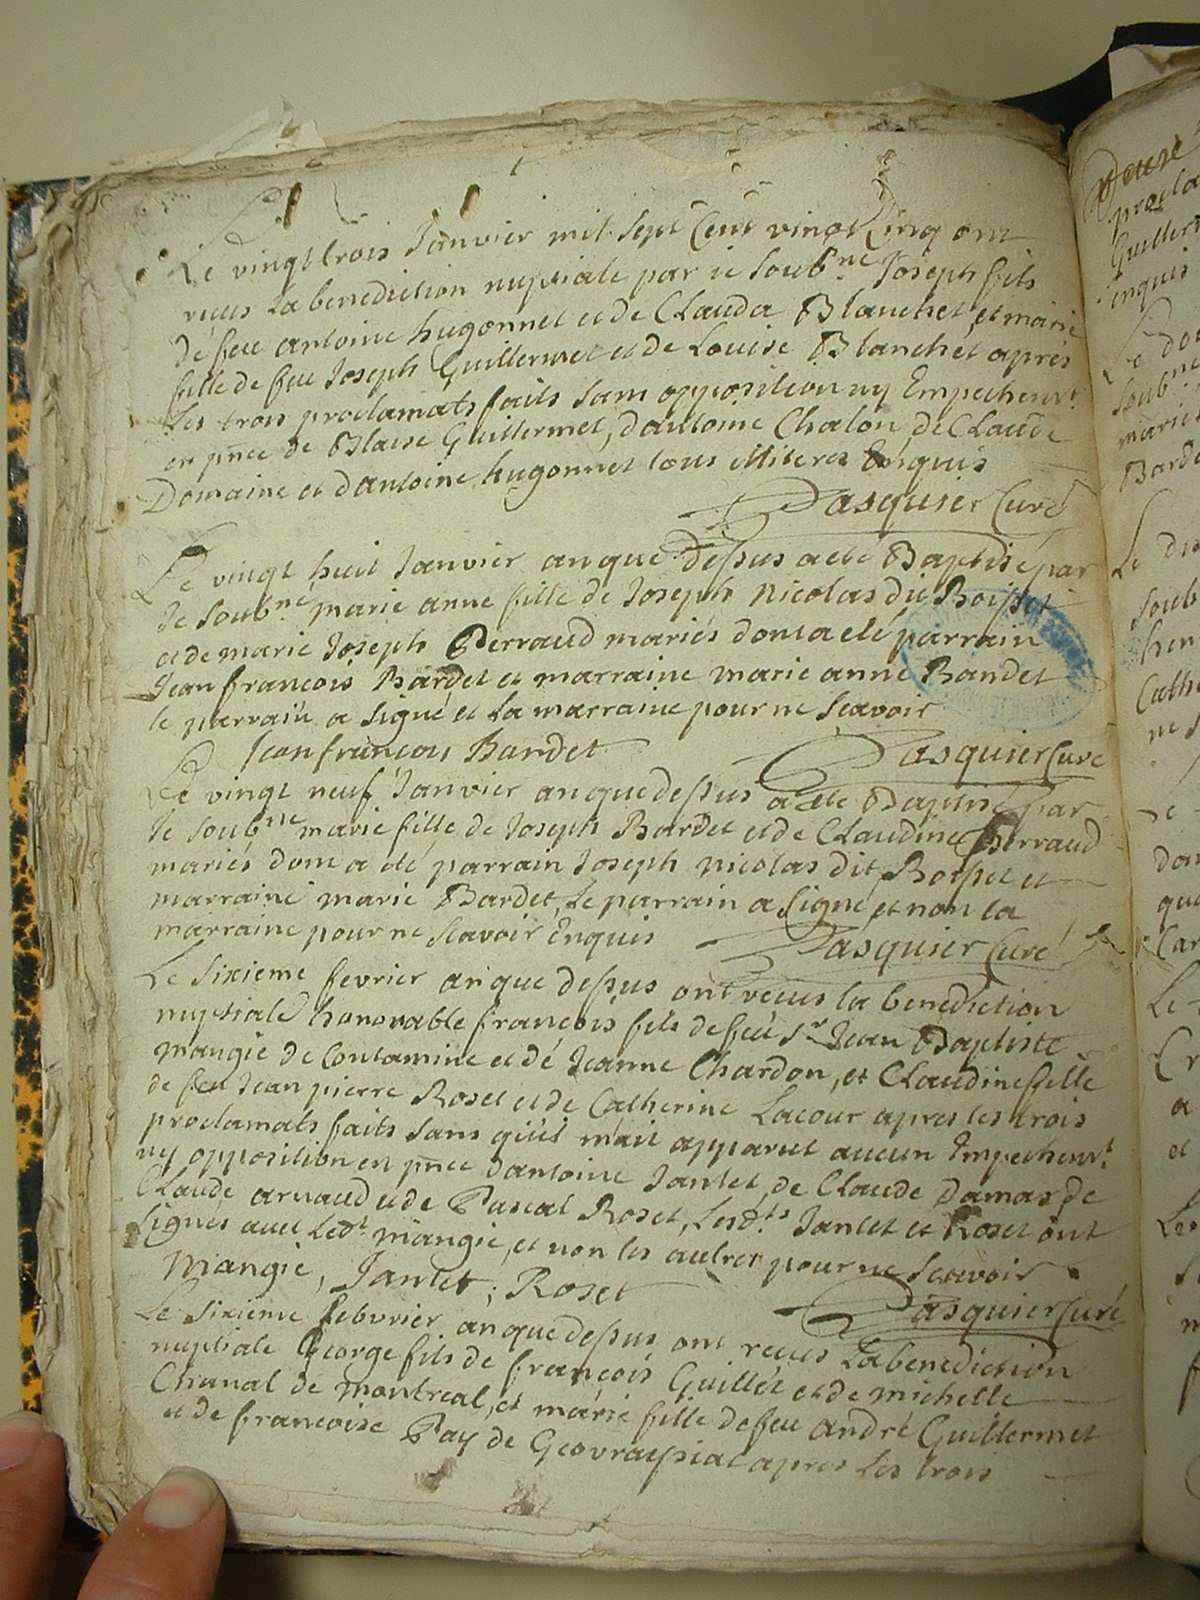 Le vingt trois Janvier mil sept Cent vingt Cinq ont
reçus la benediction nuptiale par je soub.né Joseph fils
de feu antoine hugonnet et de Clauda Blanchet, et marie
fille de feu Joseph Guillermet et de Louise Blanchet après
les trois proclamats faits sans opposition ny Empechem.t
en pñce de Blaise Guillermet, d'antoine Chalon de Claude
Domaine et d'antoine hugonnet tous illiteres Enquis
Pasquier Curé
Le vingt huit Janvier an que dessus a eté Baptisé par
je soub.né marie anne fille de Joseph Nicolas du Boisset
et de marie Joseph Perraud mariés dont a eté parrain
Jean françois Bardet et marraine marie anne Bardet
le parrain a signé et la marraine pour ne scavoir
Jean françois Bardet
Pasquier Curé
Le vingt neuf Janvier an que dessus a eté Baptisé par
je soub.né marie fille de Joseph Bardet et de Claudine Perraud
mariés dont a eté parrain Joseph Nicolas dit Boisset et
marraine marie Bardet, Le parrain a signé et non la
marraine pour ne scavoir Enquis
Pasquier Curé
Le sixieme fevrier an que dessus ont reçus la benediction
nuptiale honorable françois fils de feu s.r Jean Baptiste
mangie de Contamine et de Jeanne Chardon, et Claudine fille
de feu Jean pierre Roset et de Catherine Lacour apres les trois
proclamats faits sans qu'il m'ait apparut aucun Empechem.t
ny opposition en pñce d'antoine Jantet, de Claude Damas de
Claude arnaud et de Pascal Roset, Lesd.ts Jantet et Roset ont
signés avec Led.t mangie, et non les autres pour ne scavoir
Mangie, Jantet, Roset
Pasquier Curé
Le sixieme febvrier an que dessus ont reçus La benediction
nuptiale George fils de françois Guillet et de michelle
Chanal de montreal, et marie fille de feu andré Guillermet
et de françoise Pay de Geovraissiat apres Les trois